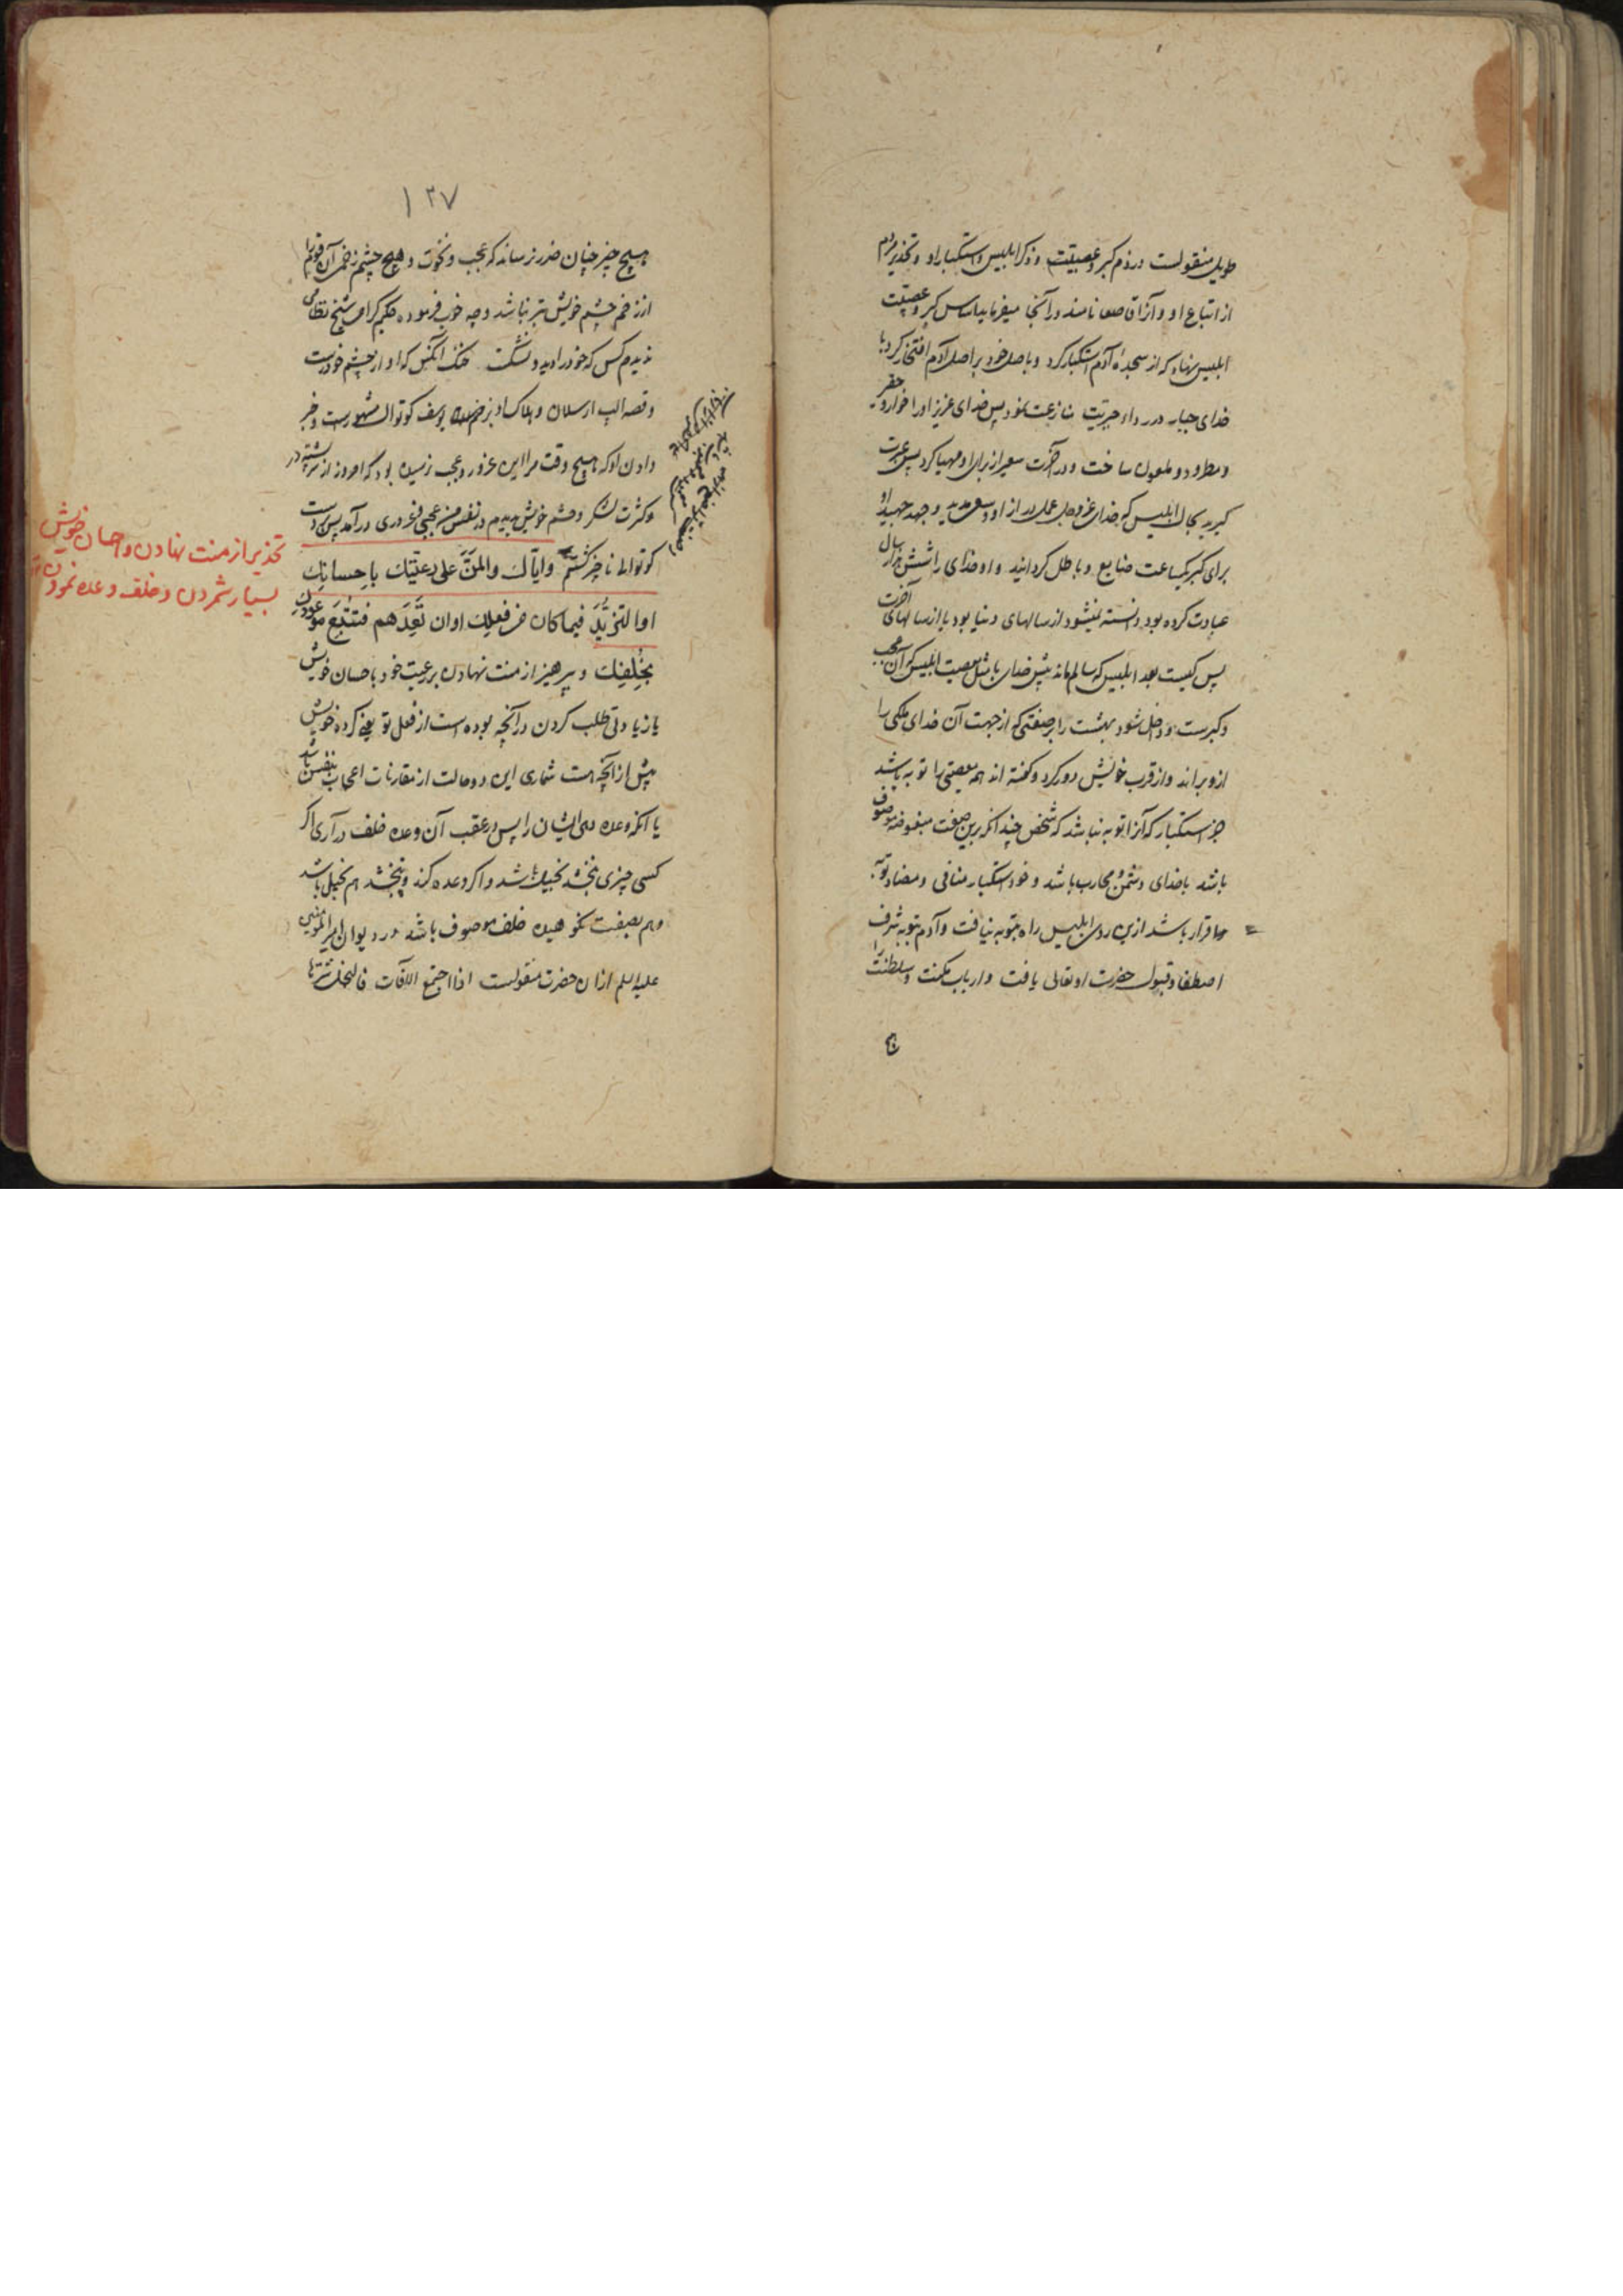 طویل منقولست در ذم کبر و عصبیّت و ذکر ابلیس و استکبار او و تحذیر مردم
از اتباع او و آنرا قاصعه نامند در آنجا میفرماید اساس کبر و عصبیّت
ابلیس نهاد که از سجدهٔ آدم استکبار کرد و باصل خود بر اصل آدم افتخار کرد با
خدای جبار در رداء جبریّت منازعت نمود پس خدای عزیز او را خوار و حقیر
و مطرود و ملعون ساخت و در آخرت سعیر از برای او مهیا کرد پس عبرت
گیرید بحال ابلیس که خدای عز و جل عمل دراز او و سعی مدید و جهد جهید او
برای کبر یکساعت ضایع و باطل گردانید و او خدای را شش هزار سال
عبادت کرده بود دانسته نیشود از سالهای دنیا بود یا از سالهای آخرت
پس کیست بعد ابلیس که سالم ماند پیش خدای با مثل معصیت ابلیس که آن عجب
و کبرست و داخل شود بهشت را بر صفتی که از جهت آن خدای ملکی را
ازو براند و از قرب خویش دور کرد و گفته اند هر معصیتی را توبه باشد
جز استکبار که آنرا توبه نباشد که شخص چندانکه برین صفت مبغوضه موصوف
باشد با خدای دشمن و محارب باشد و خود استکبار منافی و مضاد توبه
و اقرار باشد ازین روی ابلیس راه بتوبه نیافت و آدم بتوبه شرف
اصطفا و قبول حضرت او تعالی یافت و ارباب مکنت و سلطنت را
۱۲۷
هیچ چیز چنان ضرر نرساند که عجب و نخوت و هیچ چشم زخمی آن قوم را
از زخم چشم خویش بتر نباشد و چه خوب فرموده حکیم گرامی شیخ نظامی
ندیدم کس که خود را دید و نشکست خنک آنکس که او از چشم خود رست
و قصه الپ ارسلان و هلاک او بزخم یوسف کوتوال مشهورست و خبر
دادن او که هیچ وقت مرا این غرور و عجب نرسیده بود که امروز از پشته در
کثرت لشکر و حشم خویش دیدم در نفس من عجبی و غروری درآمد پس بدست
کوتوالی ناچیز کشته وایّاک والمنّ علی رعیّتک باحسانک
اوالتزیّد فیما کان من فعلک اوان تعدهم فتتبع موعودک
بخلفک و بپرهیز از منت نهادن بر رعیت خود باحسان خویش
یا زیادتی طلب کردن در آنچه بوده است از فعل تو یعنی کرده خویش
بیش از آنچه هست شماری این دو حالت از مقارنات اعجاب بنفس باشد
یا آنکه وعده دهی ایشان را پس در عقب آن وعده خلف در آری اگر
کسی چیزی نبخشد بخیل باشد و اگر وعده کند و نبخشد هم بخیل باشد
و هم بصفت نکوهیده خلف موصوف باشد در دیوان امیر المؤمنین
علیه السلم از ان حضرت منقولست اذا اجتمع الافات فالبخل شرّها
تحذیر از منت نهادن و احسان خویش
بسیار شمردن و خلف وعده نمودن